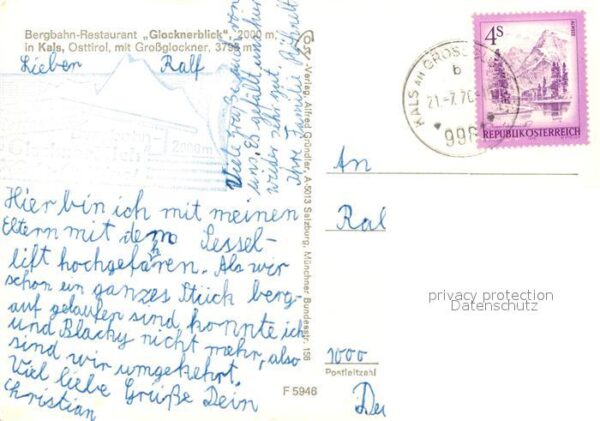 Bergbahn-Restaurant „Glocknerblick", 2000 m,
in Kals, Osttirol, mit Großglockner, 3798 m
Lieber Ralf
Hier bin ich mit meinen
Eltern mit dem Sessel-
lift hochgefaren. Als wir
h
schon ein ganzes Stück berg-
auf gelaufen sind konnte ich
und Blacky nicht mehr, also
sind wir umgekehrt.
Viel liebe Grüße Dein
Christian
Viele Grüße auch von
uns. Es gefällt uns hier
wieder sehr gut.
Ihre Familie
Verlag Alfred Gründler, A-5013 Salzburg, Münchner Bundesstr. 158
F 5946
2000 m
KALS AM GROSSGL
b
21.-7.76
996
4S
REPUBLIK ÖSTERREICH
An
Ral
privacy protection
Datenschutz
1000
Postleitzahl